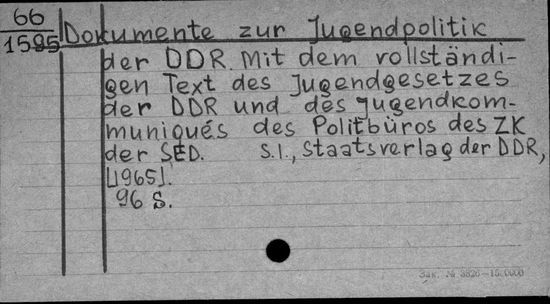 66
1595
Dokumente zur Jugendpolitik
der DDR. Mit dem vollständi-
gen Text des Jugendgesetzes
der DDR und des Jugendkom-
muniqués des Politbüros des ZK
der SED. S.l., Staatsverlag der DDR,
[1965].
96 S.
Зак. № 3826-15.0000